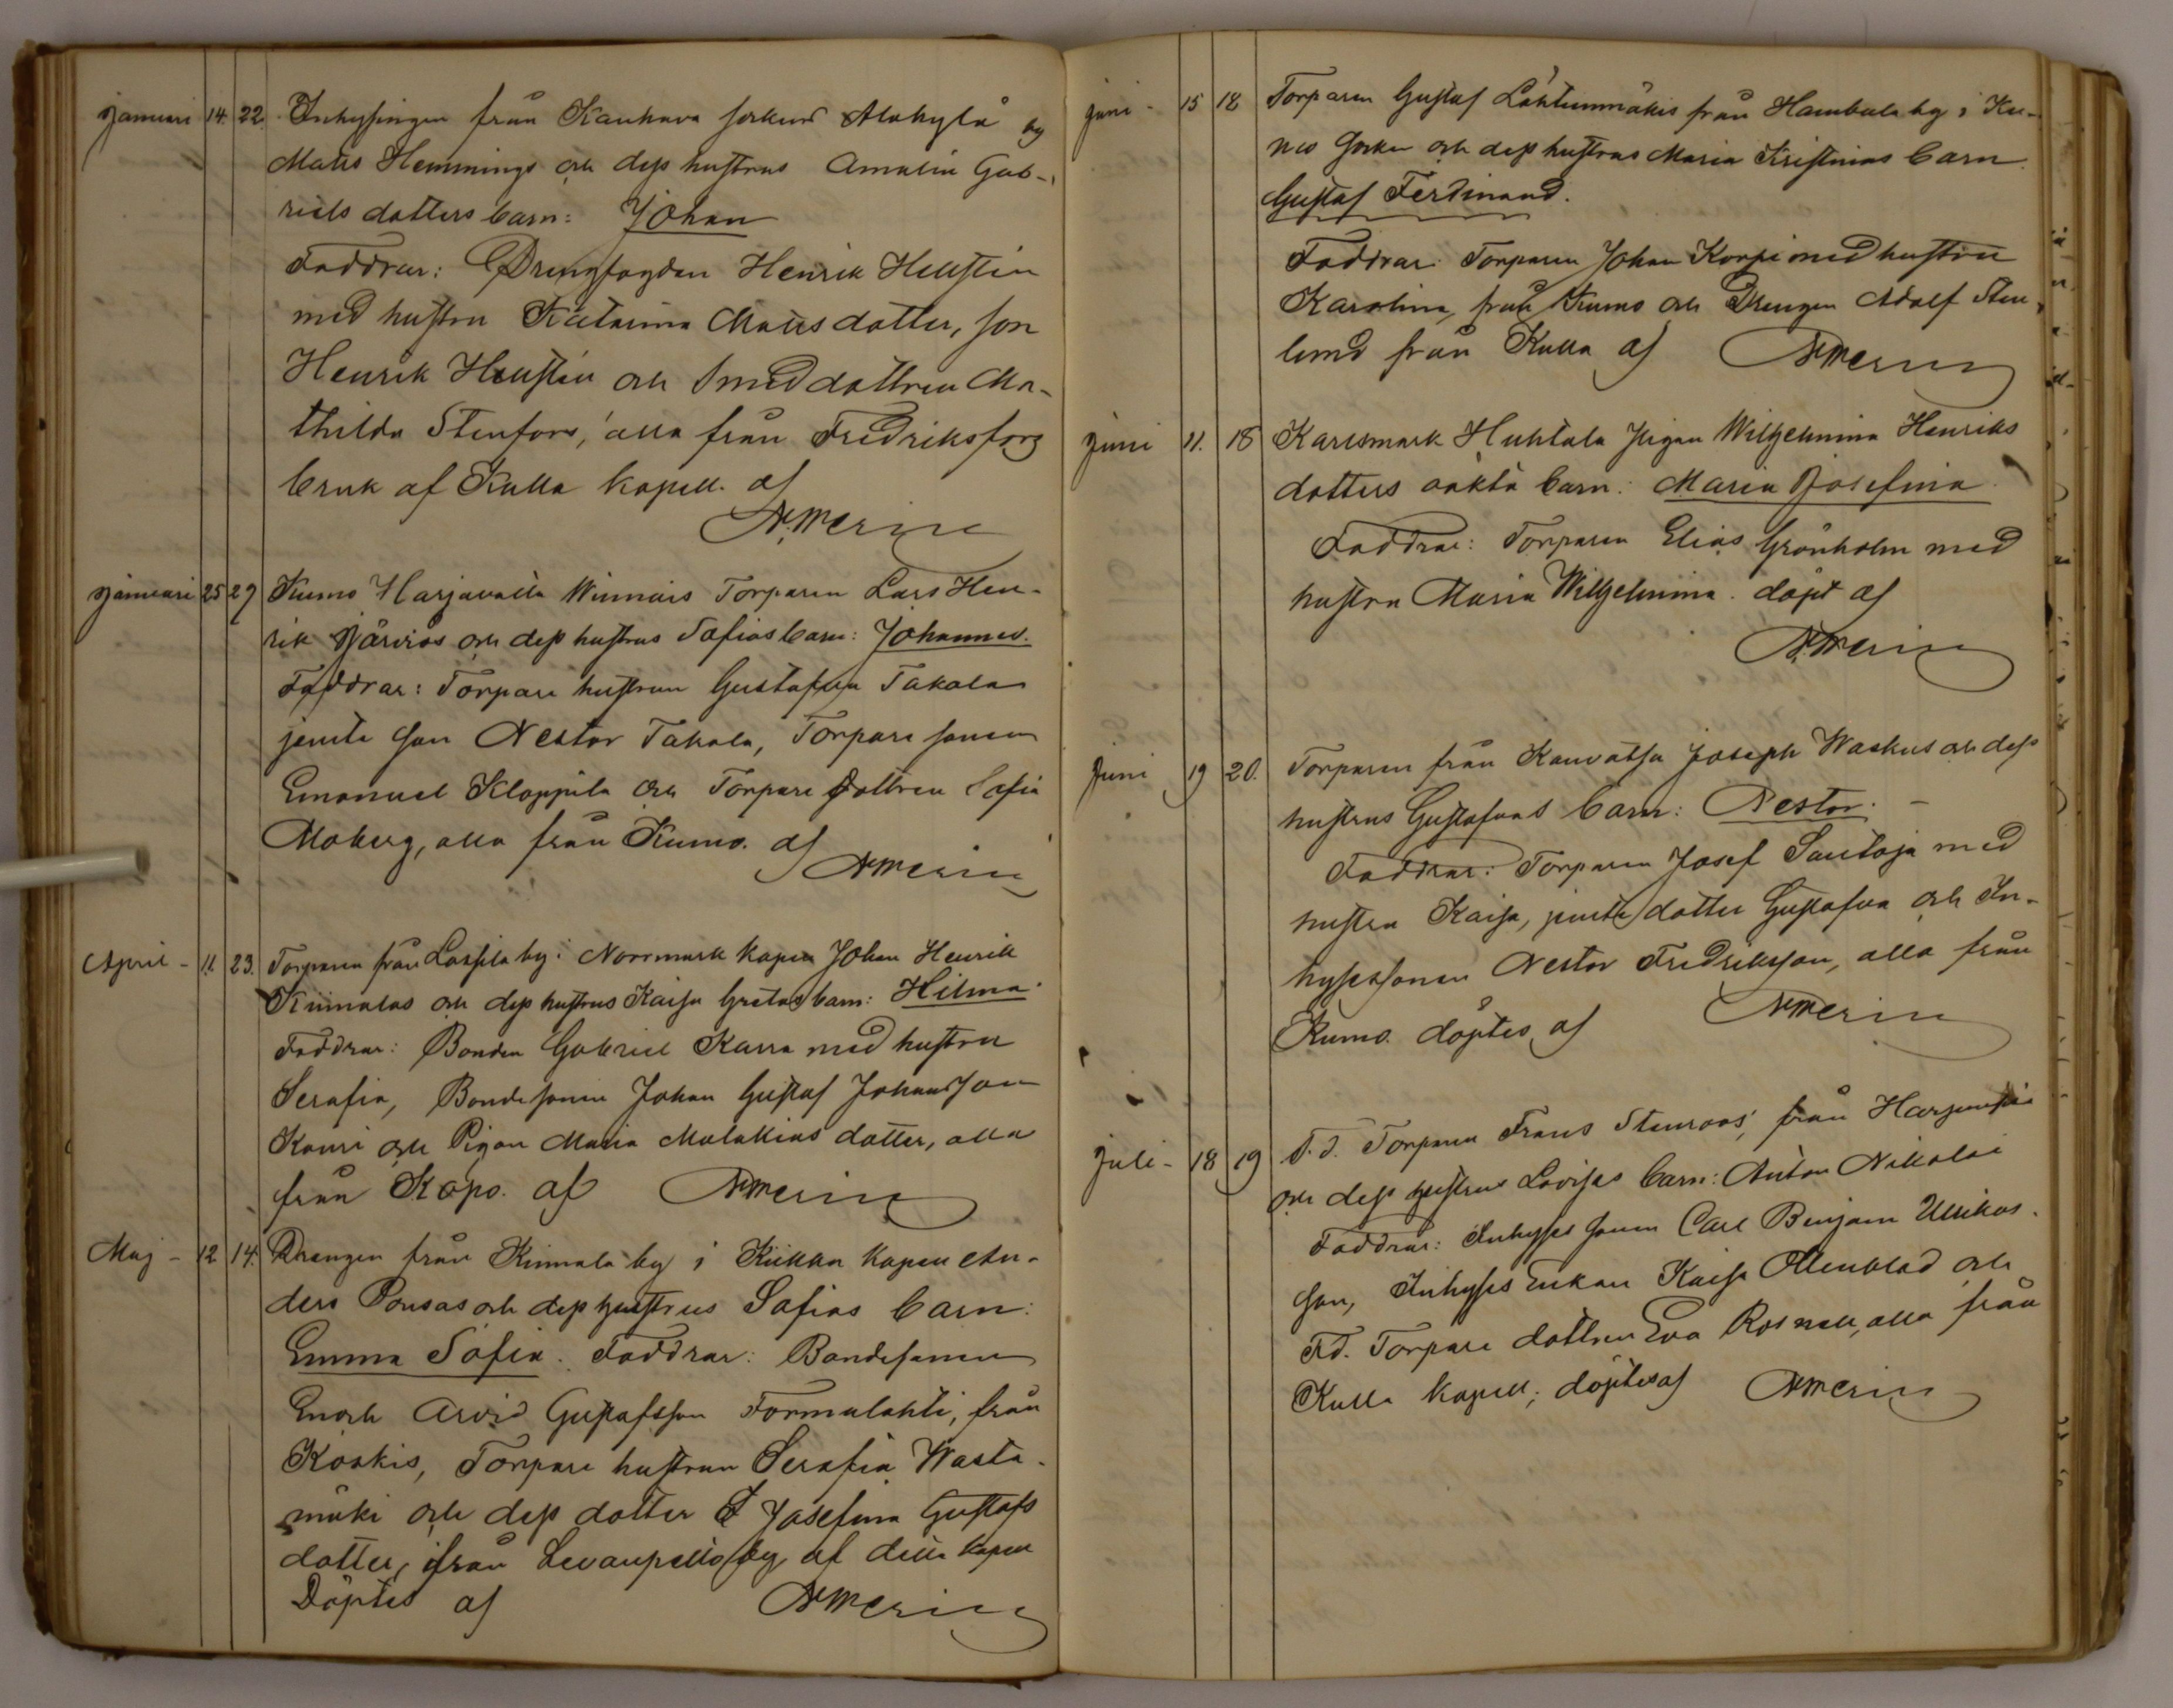 Januari 14. 22. Inhysingen från Kauhava socken Alakylä by
Matts Hemmings och dess hustrus Amalia Gab-
riels dotters barn: Johan
Faddrar: Drengfogden Henrik Hellstén
med hustru Katarina Mattsdotter, son
Henrik Hellstén och Smeddottren Ma-
thilda Stenfors, alla från Fredriksfors
bruk af Kulla kapell. af
N. Merin
Januari 25 29 Kumo Harjavalta Winnais Torparen Lars Hen-
rik Järviös och dess hustrus Sofias barn: Johannes.
Faddrar: Torpare hustrun Gustafva Takala
jemte son Nestor Takala, Torpare sonen
Emanuel Kloppila och Torpare dottren Sofia
Moberg, alla från Kumo. af
N Merin
April - 11. 23. Torparen från Lassila by i Norrmark kapell Johan Henrik
Kiimalas och dess hustrus Kaisa Gretas barn: Hilma.
Faddrar: Bonden Gabriel Karra med hustru
Serafia, Bondesonen Johan Gustaf Johansson
Kauri och Pigan Maria Malakias dotter, alla
från af N Merin
Maj - 12 14. Drengen från Kinnala by i Kiikka kapell An-
ders Ponsas och dess hustrus Sofias barn:
Emma Sofia. Faddrar: Bondesonen
Enoch Arvid Gustafsson Formulahti, från
Koskis, Torpare hustrun Serafia Wasta-
mäki och dess dotter Josefina Gustafs
dotter, från Levanpelto by af detta kapell
Döptes af N Merin
Juni - 15 18 Torparen Gustaf Lähteenmäkis från Hambula by i Ku-
mo socken och dess hustrus Maria Kristinas barn
Gustaf Ferdinand.
Faddrar: Torparen Johan Korpi med hustru
Karolina, från Kumo och Drengen Adolf Sten-
lund från Kulla af N Merin
Juni 11. 18 Karlsmark Huhtala Pigan Wilhelmina Henriks
dotters oäkta barn: Maria Josefina.
Faddrar: Torparen Elias Grönholm med
hustru Maria Wilhelmina. döpt af
N. Merin
Juni 19 20. Torparen från Kauvatsa Joseph Waskus och dess
hustrus Gustafvas barn: Nestor. -
Faddrar: Torparen Josef Santaja med
hustru Kaisa, jemte dotter Gustafva och In-
hysessonen Nestor Fredriksson, alla från
Kumo. döptes af N Merin
Juli - 18 19 F.d. Torparen Frans Stenroos, från
och dess hustrus Lovisas barn: Anton Nikolai
Faddrar: Inhyses sonen Carl Benjam Ulrikas-
son, Inhyses Enkan Kaisa Allenblad och
Fd. Torpare dottren Eva Rosnell, alla från
Kulla kapell; döptes af N Merin